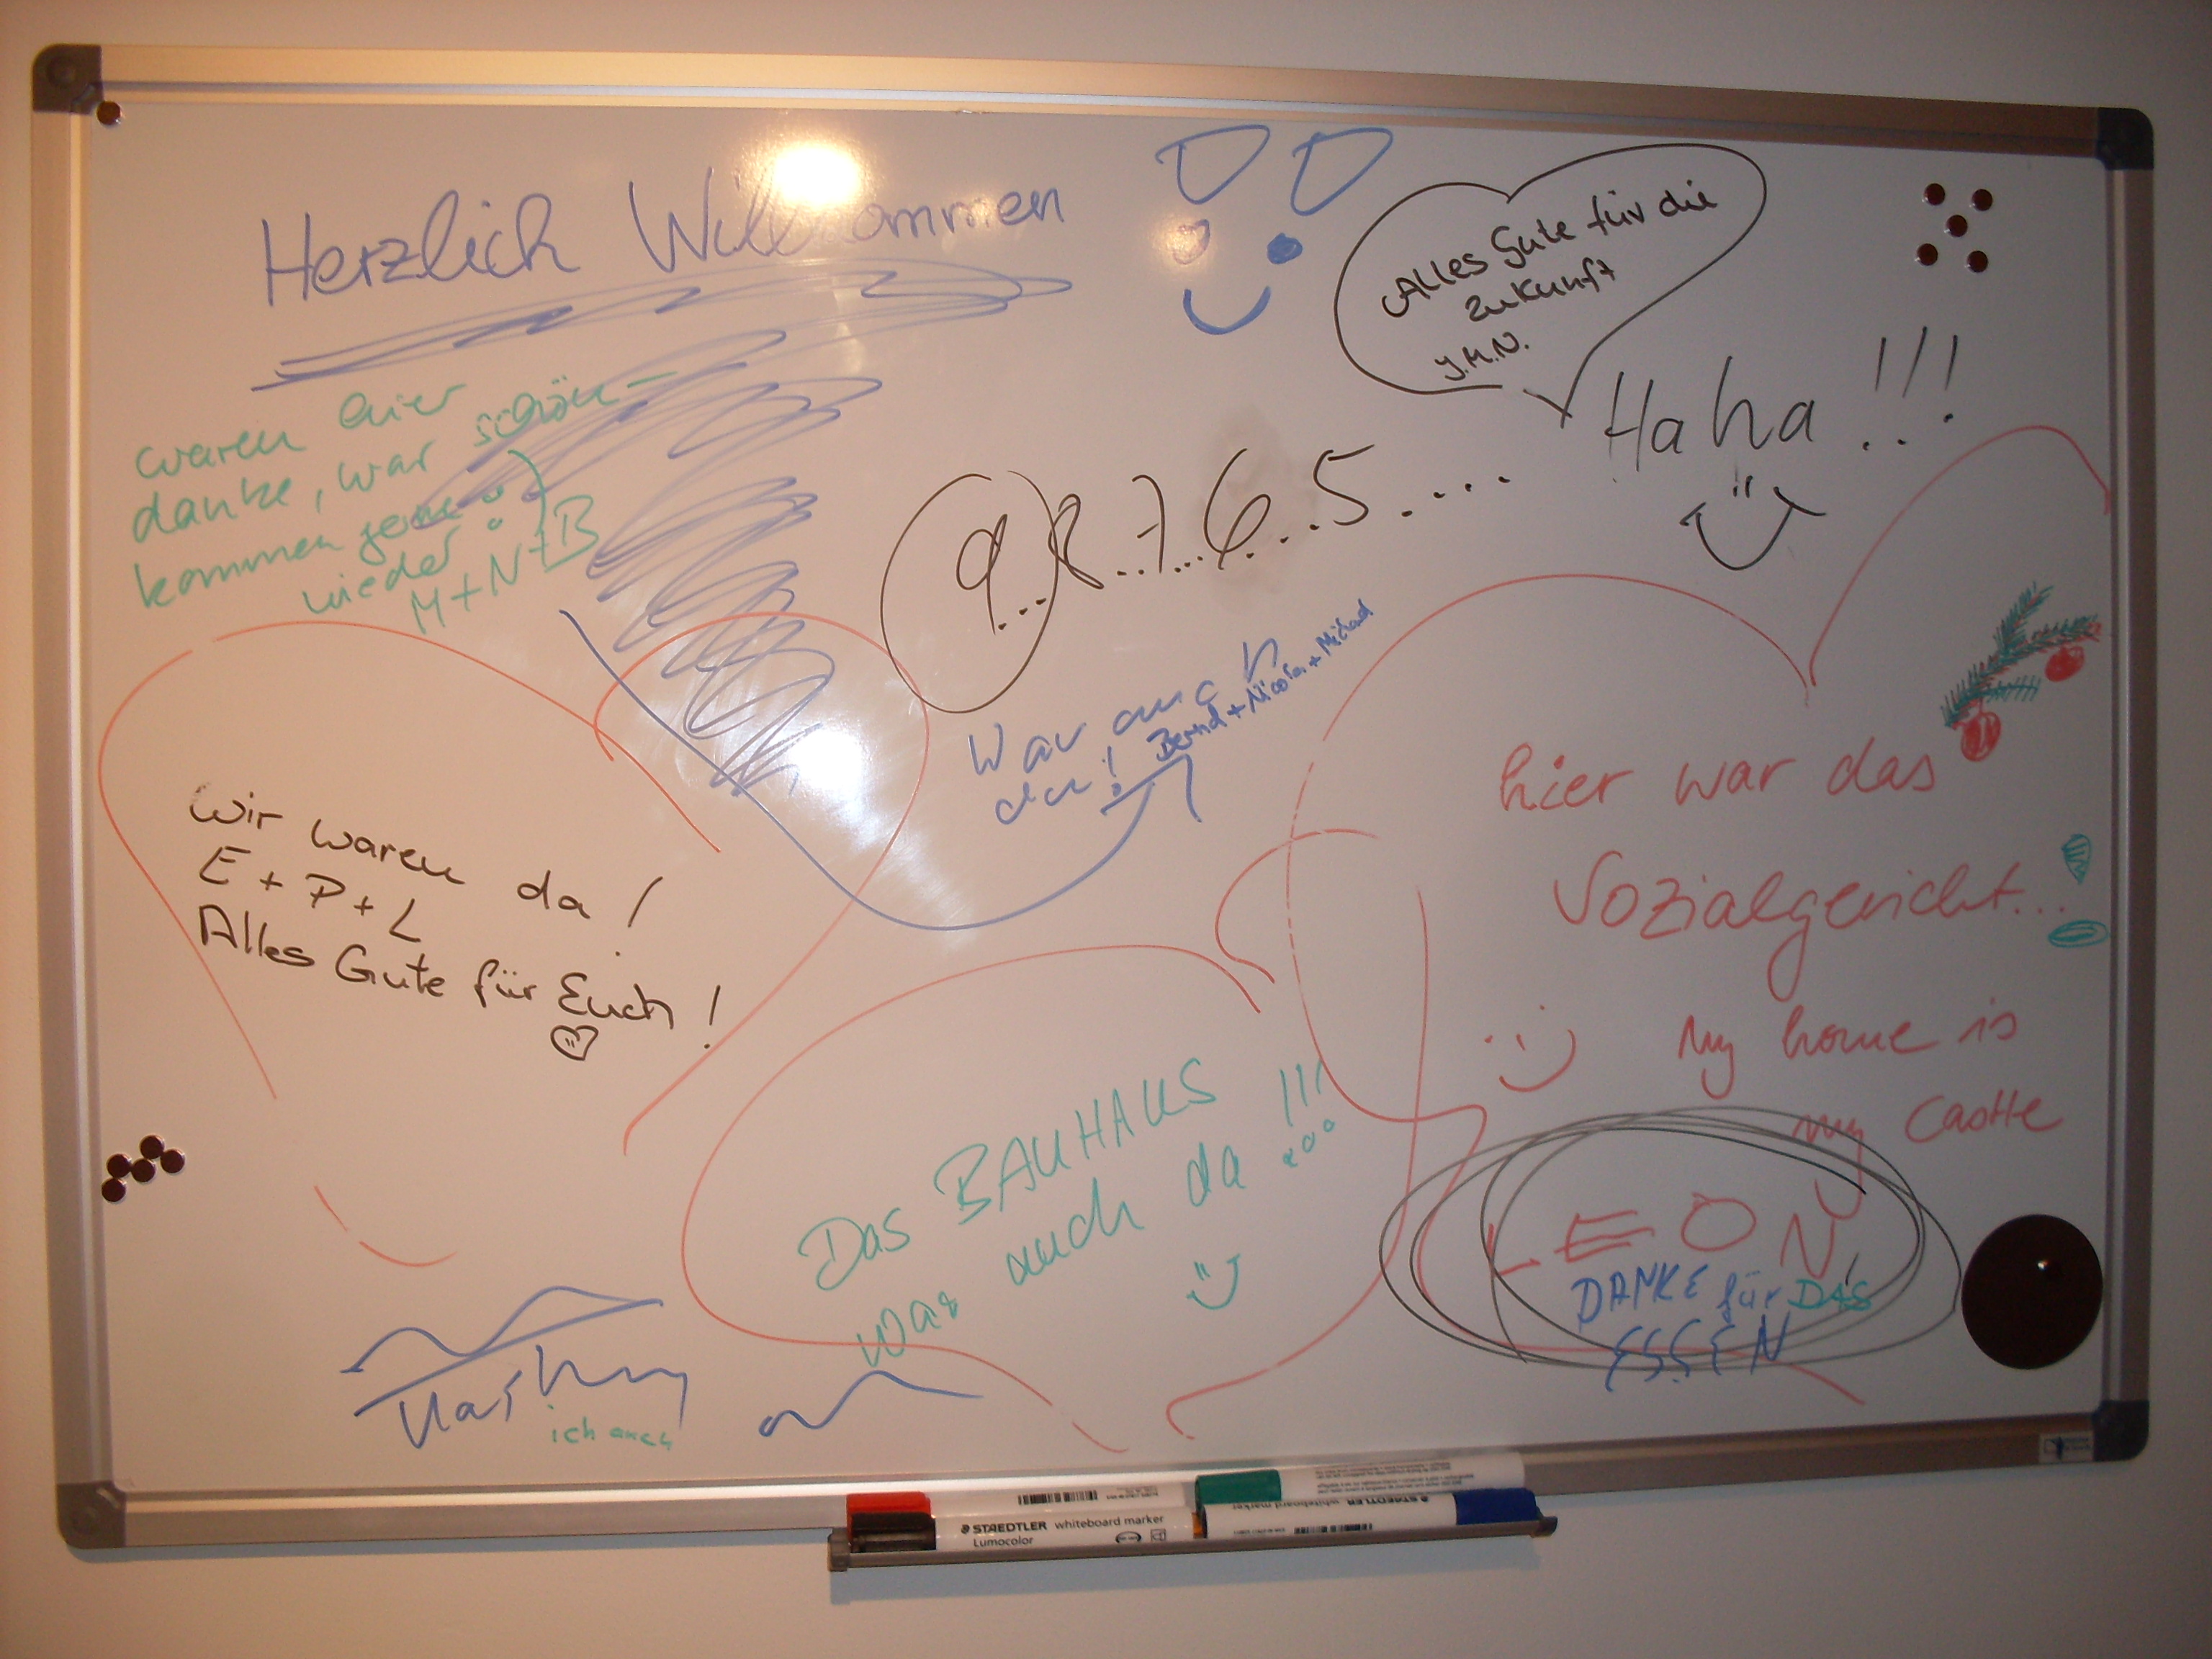 Herzlich Willkommen
Alles Gute für die
Zukunft
J.M.N.
Haha!!!
waren hier
danke, war schön –
kommen gerne
wieder
M+N+B
9...8...7...6...5....
War auch
da!
Bernd + Nicola + Michael
hier war das
Sozialgericht...
My home is
my Castle
Wir waren da!
E + P + L
Alles Gute für Euch!
Das BAUHAUS
war auch da !!!
LEON
DANKE für DAS
ESSEN
ich auch
STAEDTLER whiteboard marker
Lumocolor
STAEDTLER whiteboard marker